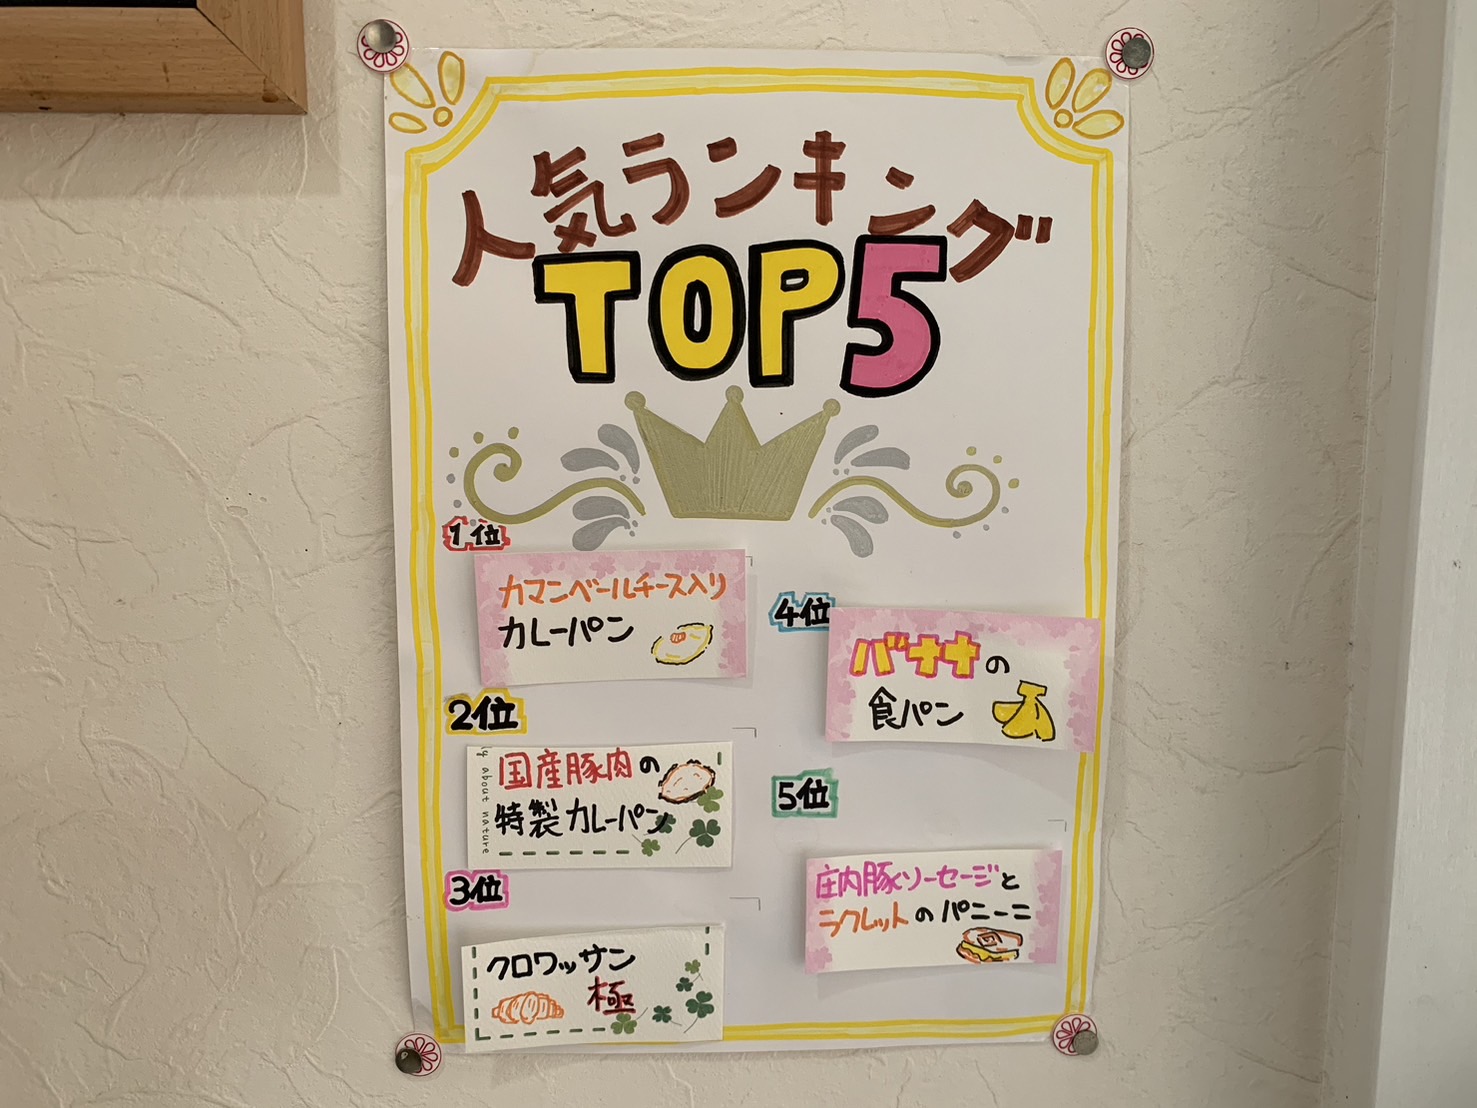 人気ランキング
TOP5
1位
カマンベールチーズ入り
カレーパン
2位
国産豚肉の
特製カレーパン
ly about nature
3位
クロワッサン
極
4位
バナナの
食パン
5位
庄内豚ソーセージと
ラクレットのパニーニ